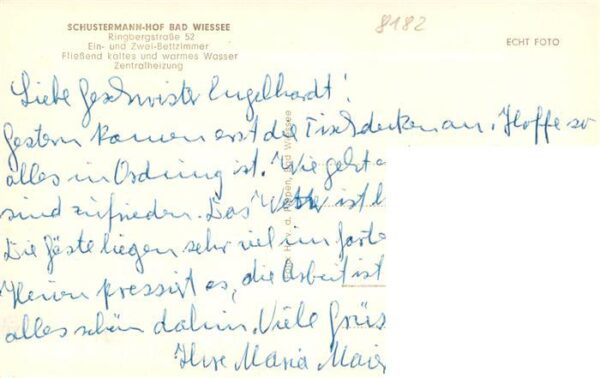 SCHUSTERMANN-HOF BAD WIESSEE
Ringbergstraße 52
Ein- und Zwei-Bettzimmer
Fließend kaltes und warmes Wasser
Zentralheizung
8182
ECHT FOTO
Liebe Geschwister Engelhardt!
Gestern kamen erst die Tischdecken an. Hoffe so
alles in Ordnung ist. Wie geht
sind zufrieden. Das Wetter ist
Die Gäste liegen sehr viel im
pressiert es, die Arbeit ist
alles schön dahin. Viele Grüs
Ihre Maria Maier
Bad Wiessee